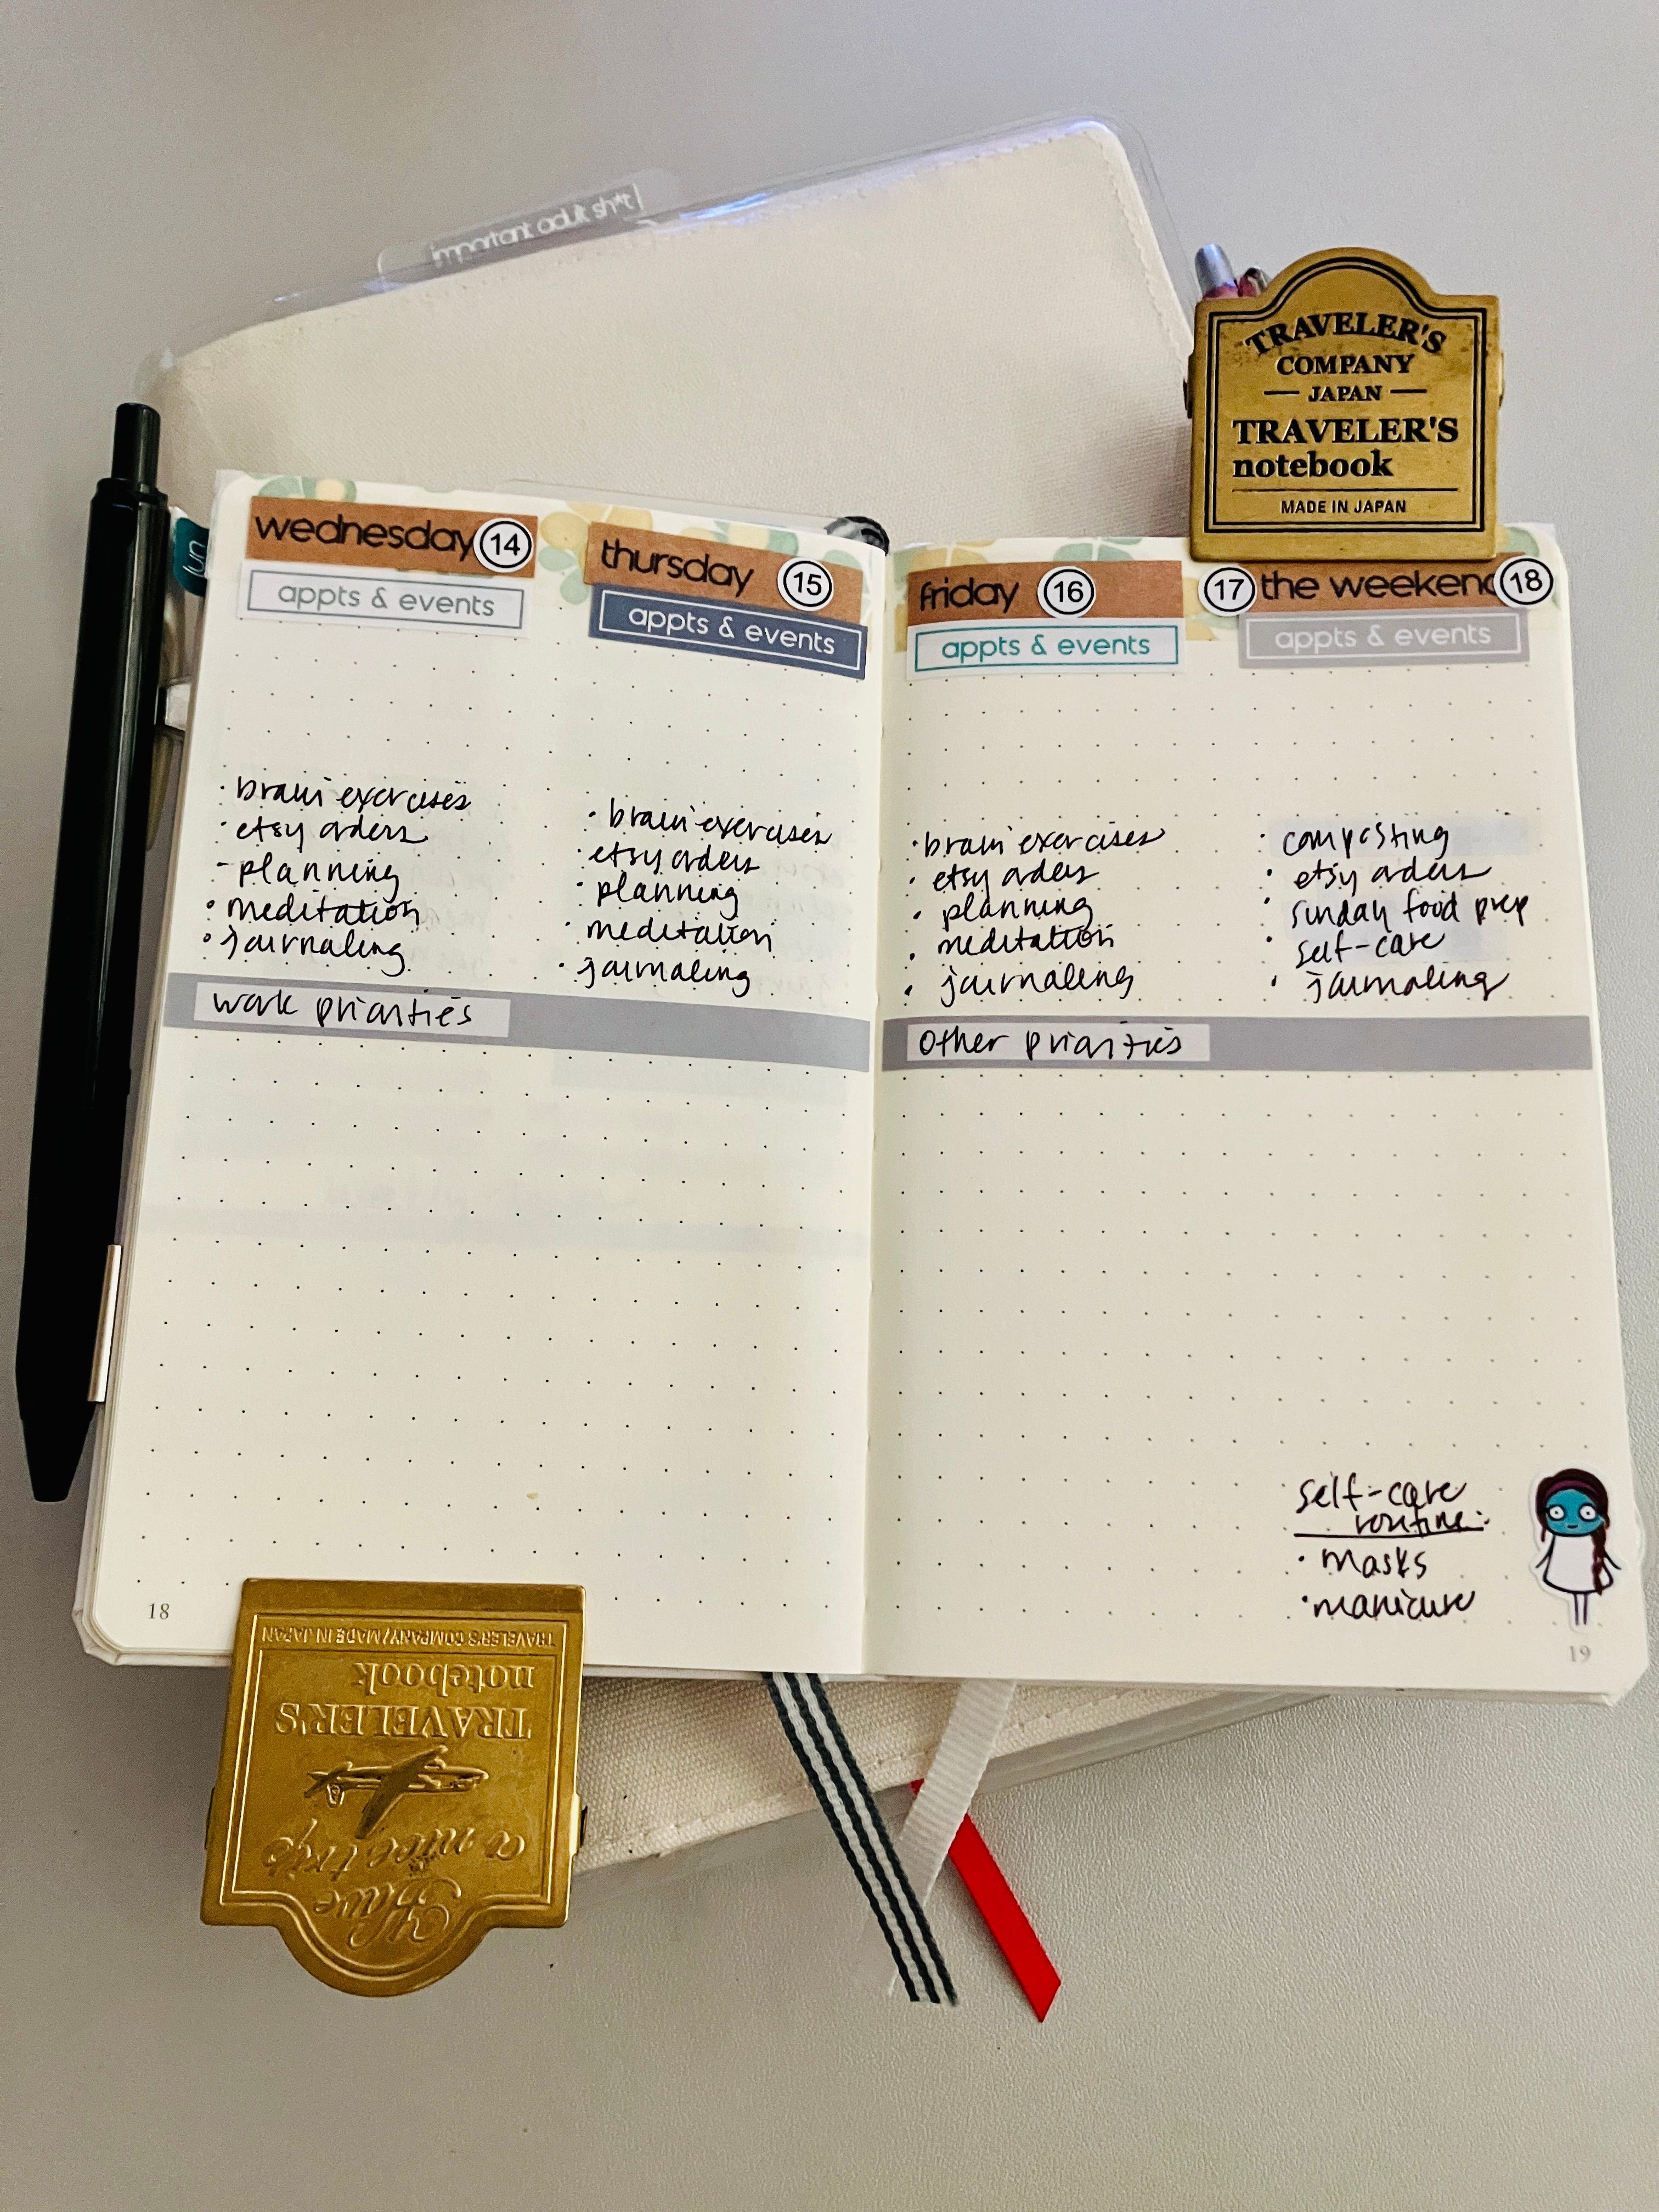 important adult sh*t
TRAVELER'S
COMPANY
JAPAN
TRAVELER'S
notebook
MADE IN JAPAN
jun
wednesday 14
appts & events
· brain exercises
· etsy orders
- planning
· meditation
· journaling
thursday 15
appts & events
· brain exercises
· etsy orders
· planning
· meditation
· journaling
work priorities
18
friday 16
appts & events
· brain exercises
· etsy orders
· planning
· meditation
· journaling
17 the weekend 18
appts & events
· composting
· etsy orders
· sunday food prep
· self-care
· journaling
other priorities
self-care
routine:
· masks
· manicure
19
Have
a nice trip
TRAVELER'S
notebook
TRAVELER'S COMPANY/MADE IN JAPAN